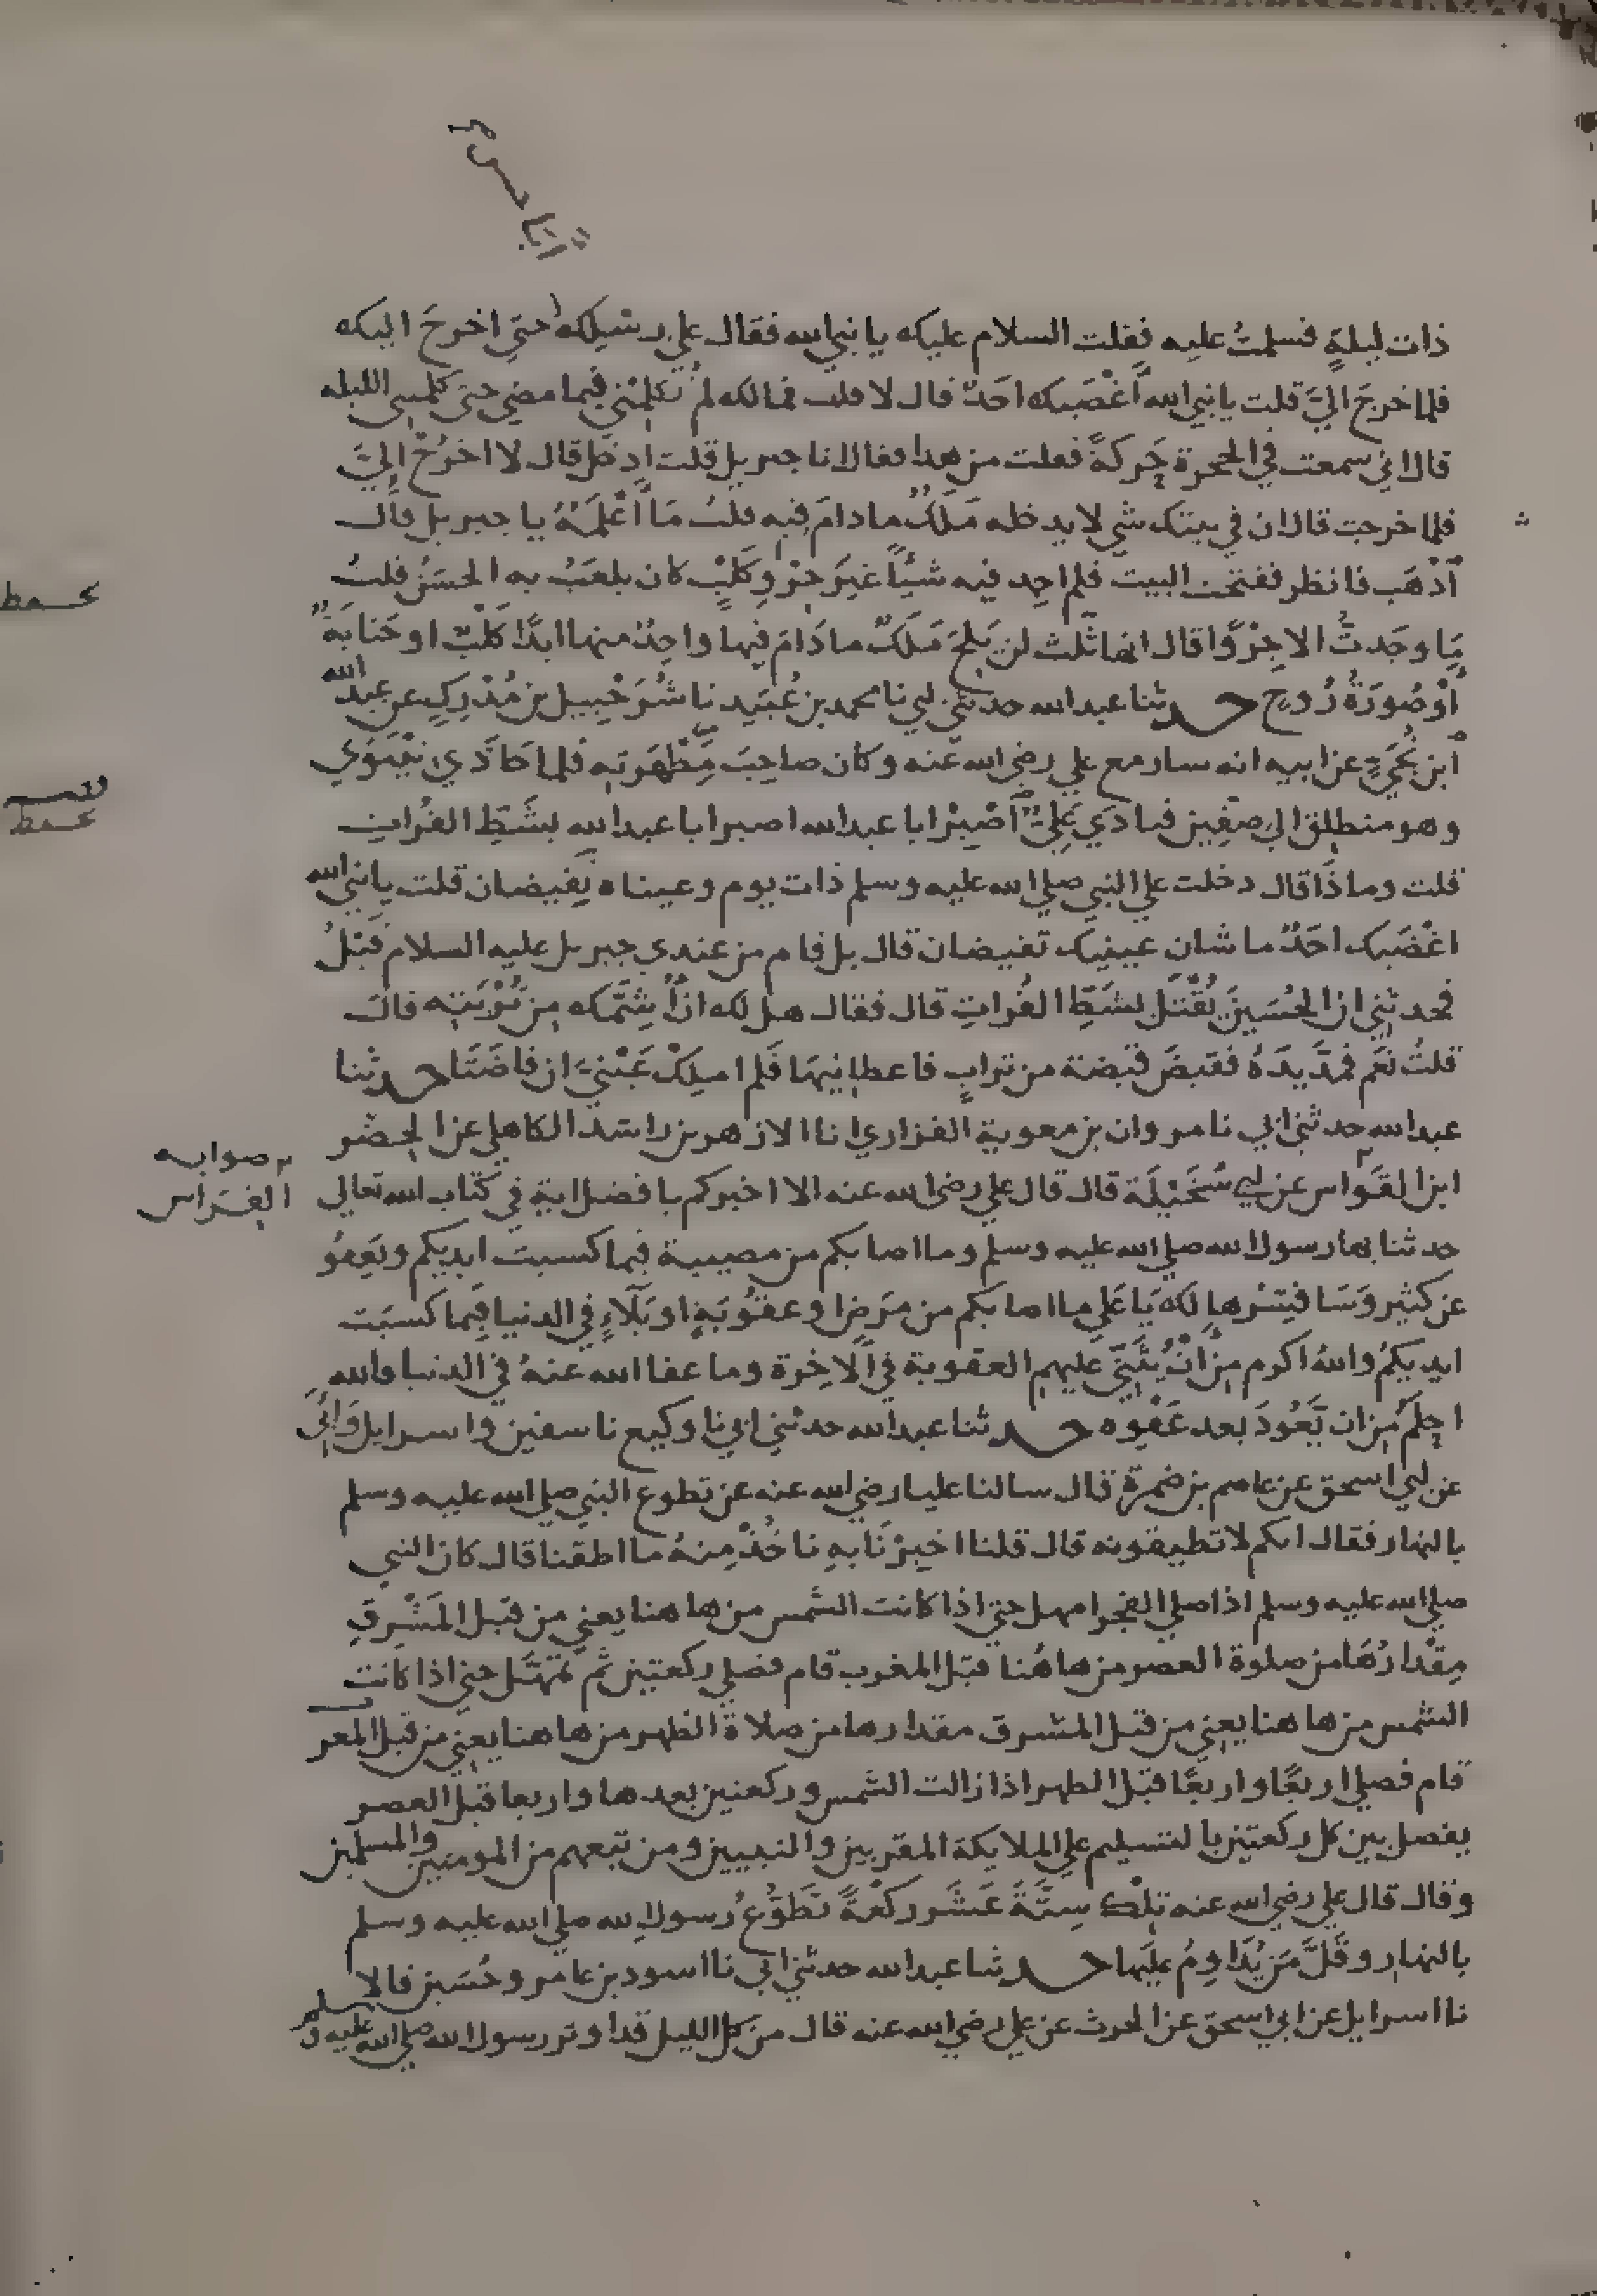 ذات ليلةٍ فسلمتُ عليه فقلت السلام عليك يا نبي الله فقال علي رِسْلِك حتى اخرجَ اليك
فلما خرجَ اليَّ قلت يا نبي الله أَغْضَبك احَدٌ قال لا قلت فمالك لم تُكلِمْني فيما مضى حتى كلمتني الليله
قال اني سمعت في الحجرة حَركةً فقلت من هذا فقال انا جبريل قلت ادخل قال لا اخرُجْ اليَّ
فلما خرجت قال ان في بيتك شي لا يدخله مَلَكٌ ما دامَ فيه قلتُ مَا أعْلَمُهُ يا جبريل قال
أذْهَب فانظر ففتحت البيت فلم اجد فيه شيْأً غيرَ جِرْوِ كَلْبٍ كان يلعَبُ به الحسَنُ قلتُ
مَا وجَدتُ الا جِرْوًا قال انها ثلث لن يَلِجَ مَلَكٌ ما دَامَ فيها واحِدٌ منها ابدًا كَلْبٌ او جَنابَةٌ
أوْ صُورَةُ رُوحٍ حدثنا عبد الله حدثني ابي نا محمد بن عُبَيد نا شُرَحْبِيل بن مُدْرِكٍ عن عبد الله
ابن نُجَيٍّ عن ابيه انه سار مع علي رضي الله عنه وكان صاحِبَ مِطْهَرَتِه فلما حَاذَي نِيْنَوَي
وهو منطلق الي صِفِين فنادَي عَلِيٌّ أصْبِرْ ابا عبد الله اصبر ابا عبد الله بشَطِّ الفُراتِ
قلت وماذَا قال دخلت علي النبي صلى الله عليه وسلم ذات يوم وعيناه تَفِيضان قلت يا نبي الله
اغْضَبك احَدٌ ما شان عينيك تفيضان قال بل قام من عندي جبريل عليه السلام قَبْلُ
فحدثني ان الحُسَينَ يُقْتَل بشَطِّ الفُراتِ قال فقال هل لك ان أُشِمَّك مِن تُرْبَتِه قال
قلتُ نَعَم فمَدَّ يَدَهُ فقَبضَ قَبْضة من ترابٍ فاعطانِيهَا فَلم املِكْ عَيْنَيَّ ان فاضَتَا حدثنا
عبد الله حدثني ابي نا مروان بن معوية الفزاري انا الازهر بن راشد الكاهلي عن الخضر
ابن القَوَّاس عن ابي سُخَيْلَة قال قال علي رضي الله عنه الا اخبركم بافضل اية في كتاب الله تعالى
حدثنا بها رسول الله صلي الله عليه وسلم وما اصابكم من مصيبة فبما كسبت ايديكم ويَعفُو
عن كثير وسَافَسِّرها لك يَا عَلي ما اصابكم من مَرَضٍ او عقُوبَةٍ او بَلَاءٍ في الدنيا فبِما كسبَت
ايديكمُ واللهُ اكرم مِن أنْ يُثَنِّيَ عَلَيهم العقوبة في الآخِرة وما عفا الله عنهُ في الدنيا فالله
احلمُ مِن ان يَعُودَ بعد عَفْوِه حدثنا عبد الله حدثني ابي نا وكيع نا سفين واسرايل وَابي
عن ابي اسحق عن عاصم بن ضمرة قال سالنا عليا رضي الله عنه عن تطوع النبي صلي الله عليه وسلم
بالنهار فقال انكم لا تطيقونه قال قلنا اخبِرْنَا بهِ ناخُذْ مِنهُ ما اطقنا قال كان النبي
صلي الله عليه وسلم اذا صلي الفجر امهل حتي اذا كانت الشمس من هاهنا يعني من قبل المَشْرِقِ
مِقْدارُهَا من صلوة العصر من هاهُنا قبَل المغرب قام فصلي ركعتين ثم يمَهَّل حتي اذا كانت
الشمس من هاهنا يعني من قبل المشرق مقدارها من صلاة الظهر من هاهنا يعني من قبل المغر
قام فصلي اربعًا واربعًا قبَل الظهر اذا زالت الشمس وركعتين بعدها واربعا قبل العصر
يفصل بين كل ركعتين بالتسليم علي الملايكة المقربين والنبيين ومن تبعهم من المومنين والمسلمين
وقال قال علي رضي الله عنه تِلْك سِتَّةَ عَشَر ركعةً تَطَوُّعُ رسول الله صلي الله عليه وسلم
بالنهار وقَلَّ مَن يُدَاوِمُ علَيها حدثنا عبد الله حدثني ابي نا اسود بن عامر وحُسَين قالا
نا اسرايل عن ابي اسحق عن الحرث عن علي رضي الله عنه قال من كل الليل قد اوتر رسول الله صلي الله عليه وسلم
صوابه
الفَرَّاس